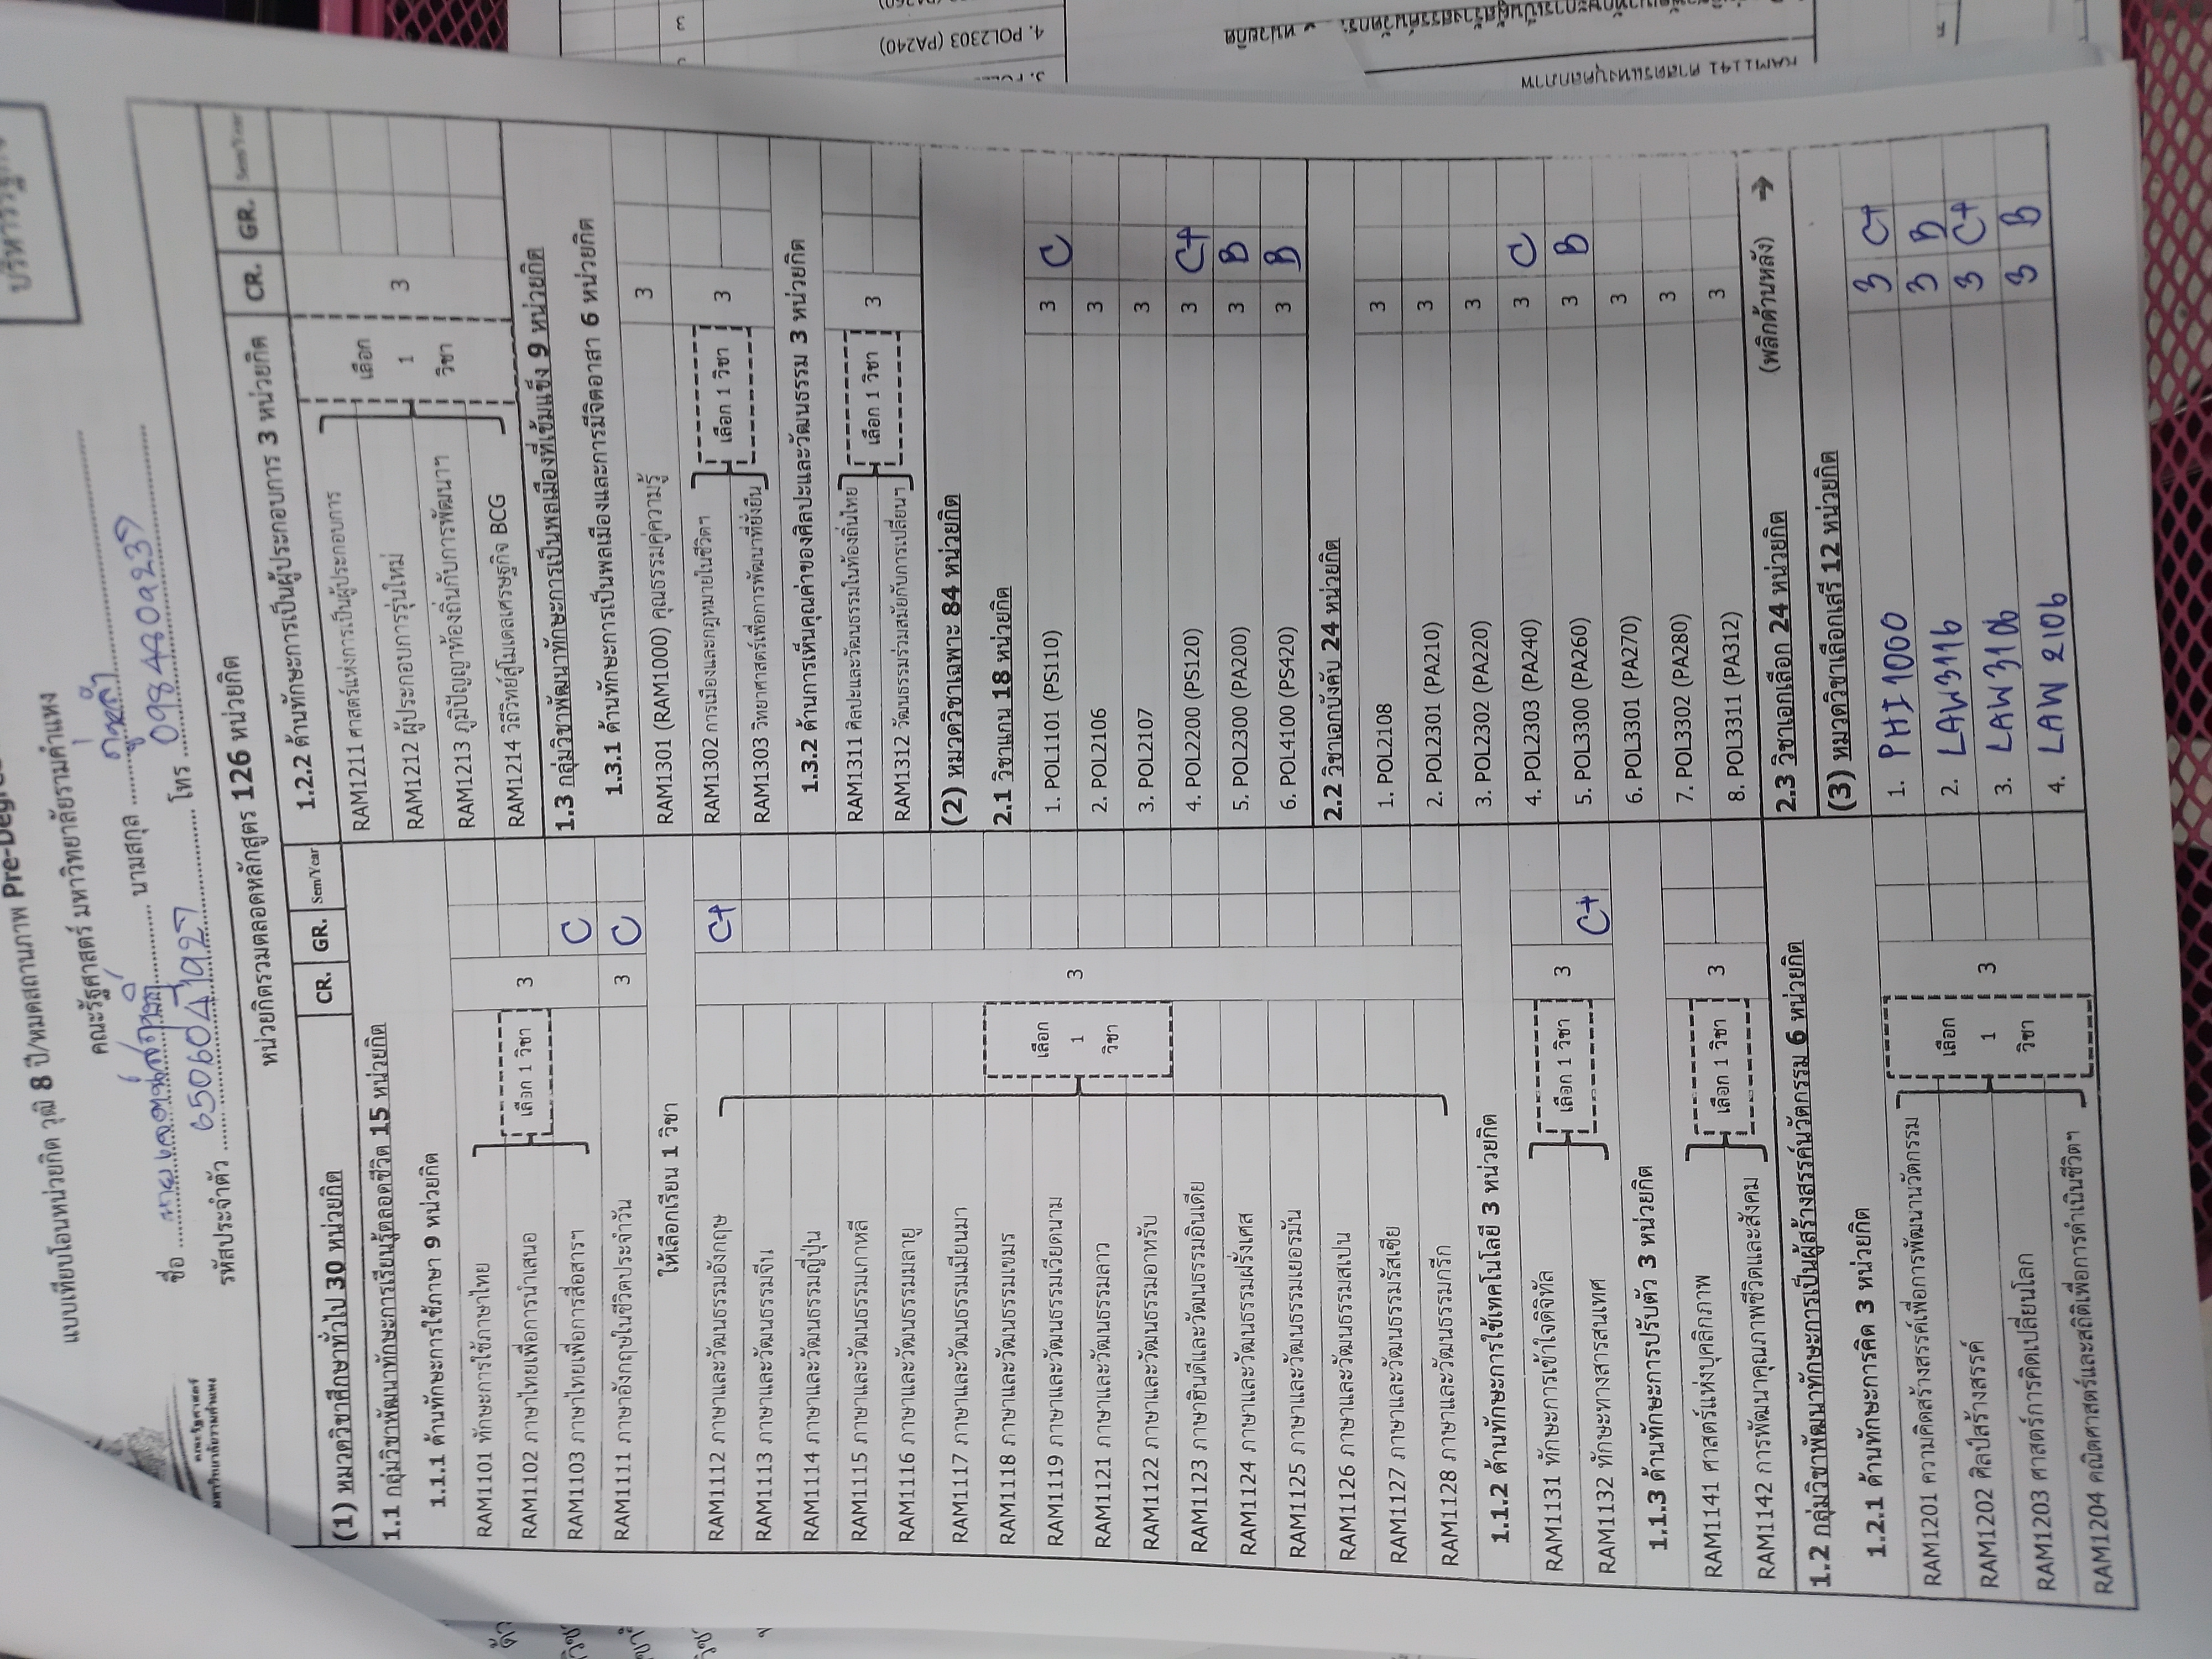 บริหารรัฐกิจ
แบบเทียบโอนหน่วยกิต วุฒิ 8 ปี/หมดสถานภาพ Pre-Degree
คณะรัฐศาสตร์ มหาวิทยาลัยรามคำแหง
คณะรัฐศาสตร์
มหาวิทยาลัยรามคำแหง
ชื่อ นาย นามสกุล
รหัสประจำตัว 6506047927 โทร 0984409237
หน่วยกิตรวมตลอดหลักสูตร 126 หน่วยกิต
CR. GR. Sem/Year
(1) หมวดวิชาศึกษาทั่วไป 30 หน่วยกิต
1.1 กลุ่มวิชาพัฒนาทักษะการเรียนรู้ตลอดชีวิต 15 หน่วยกิต
1.1.1 ด้านทักษะการใช้ภาษา 9 หน่วยกิต
RAM1101 ทักษะการใช้ภาษาไทย
RAM1102 ภาษาไทยเพื่อการนำเสนอ เลือก 1 วิชา 3
RAM1103 ภาษาไทยเพื่อการสื่อสารฯ C
RAM1111 ภาษาอังกฤษในชีวิตประจำวัน 3 C
ให้เลือกเรียน 1 วิชา
RAM1112 ภาษาและวัฒนธรรมอังกฤษ C+
RAM1113 ภาษาและวัฒนธรรมจีน
RAM1114 ภาษาและวัฒนธรรมญี่ปุ่น
RAM1115 ภาษาและวัฒนธรรมเกาหลี
RAM1116 ภาษาและวัฒนธรรมมลายู
RAM1117 ภาษาและวัฒนธรรมเมียนมา
RAM1118 ภาษาและวัฒนธรรมเขมร เลือก
RAM1119 ภาษาและวัฒนธรรมเวียดนาม 1 3
RAM1121 ภาษาและวัฒนธรรมลาว วิชา
RAM1122 ภาษาและวัฒนธรรมอาหรับ
RAM1123 ภาษาฮินดีและวัฒนธรรมอินเดีย
RAM1124 ภาษาและวัฒนธรรมฝรั่งเศส
RAM1125 ภาษาและวัฒนธรรมเยอรมัน
RAM1126 ภาษาและวัฒนธรรมสเปน
RAM1127 ภาษาและวัฒนธรรมรัสเซีย
RAM1128 ภาษาและวัฒนธรรมกรีก
1.1.2 ด้านทักษะการใช้เทคโนโลยี 3 หน่วยกิต
RAM1131 ทักษะการเข้าใจดิจิทัล เลือก 1 วิชา 3
RAM1132 ทักษะทางสารสนเทศ C+
1.1.3 ด้านทักษะการปรับตัว 3 หน่วยกิต
RAM1141 ศาสตร์แห่งบุคลิกภาพ เลือก 1 วิชา 3
RAM1142 การพัฒนาคุณภาพชีวิตและสังคม
1.2 กลุ่มวิชาพัฒนาทักษะการเป็นผู้สร้างสรรค์นวัตกรรม 6 หน่วยกิต
1.2.1 ด้านทักษะการคิด 3 หน่วยกิต
RAM1201 ความคิดสร้างสรรค์เพื่อการพัฒนานวัตกรรม เลือก
RAM1202 ศิลป์สร้างสรรค์ 1 3
RAM1203 ศาสตร์การคิดเปลี่ยนโลก วิชา
RAM1204 คณิตศาสตร์และสถิติเพื่อการดำเนินชีวิตฯ
CR. GR. Sem/Year
1.2.2 ด้านทักษะการเป็นผู้ประกอบการ 3 หน่วยกิต
RAM1211 ศาสตร์แห่งการเป็นผู้ประกอบการ เลือก
RAM1212 ผู้ประกอบการรุ่นใหม่ 1 3
RAM1213 ภูมิปัญญาท้องถิ่นกับการพัฒนาฯ วิชา
RAM1214 วิถีวิทย์สู่โมเดลเศรษฐกิจ BCG
1.3 กลุ่มวิชาพัฒนาทักษะการเป็นพลเมืองที่เข้มแข็ง 9 หน่วยกิต
1.3.1 ด้านทักษะการเป็นพลเมืองและการมีจิตอาสา 6 หน่วยกิต
RAM1301 (RAM1000) คุณธรรมคู่ความรู้ 3
RAM1302 การเมืองและกฎหมายในชีวิตฯ เลือก 1 วิชา 3
RAM1303 วิทยาศาสตร์เพื่อการพัฒนาที่ยั่งยืน
1.3.2 ด้านการเห็นคุณค่าของศิลปะและวัฒนธรรม 3 หน่วยกิต
RAM1311 ศิลปะและวัฒนธรรมในท้องถิ่นไทย เลือก 1 วิชา 3
RAM1312 วัฒนธรรมร่วมสมัยกับการเปลี่ยนฯ
(2) หมวดวิชาเฉพาะ 84 หน่วยกิต
2.1 วิชาแกน 18 หน่วยกิต
1. POL1101 (PS110) 3 C
2. POL2106 3
3. POL2107 3
4. POL2200 (PS120) 3 C+
5. POL2300 (PA200) 3 B
6. POL4100 (PS420) 3 B
2.2 วิชาเอกบังคับ 24 หน่วยกิต
1. POL2108 3
2. POL2301 (PA210) 3
3. POL2302 (PA220) 3
4. POL2303 (PA240) 3 C
5. POL3300 (PA260) 3 B
6. POL3301 (PA270) 3
7. POL3302 (PA280) 3
8. POL3311 (PA312) 3
2.3 วิชาเอกเลือก 24 หน่วยกิต (พลิกด้านหลัง) →
(3) หมวดวิชาเลือกเสรี 12 หน่วยกิต
1. PHI 1000 3 C+
2. LAW3116 3 B
3. LAW 3106 3 C+
4. LAW 2106 3 B
4. POL2303 (PA240)
RAM1141 ศาสตร์แห่งบุคลิกภาพ